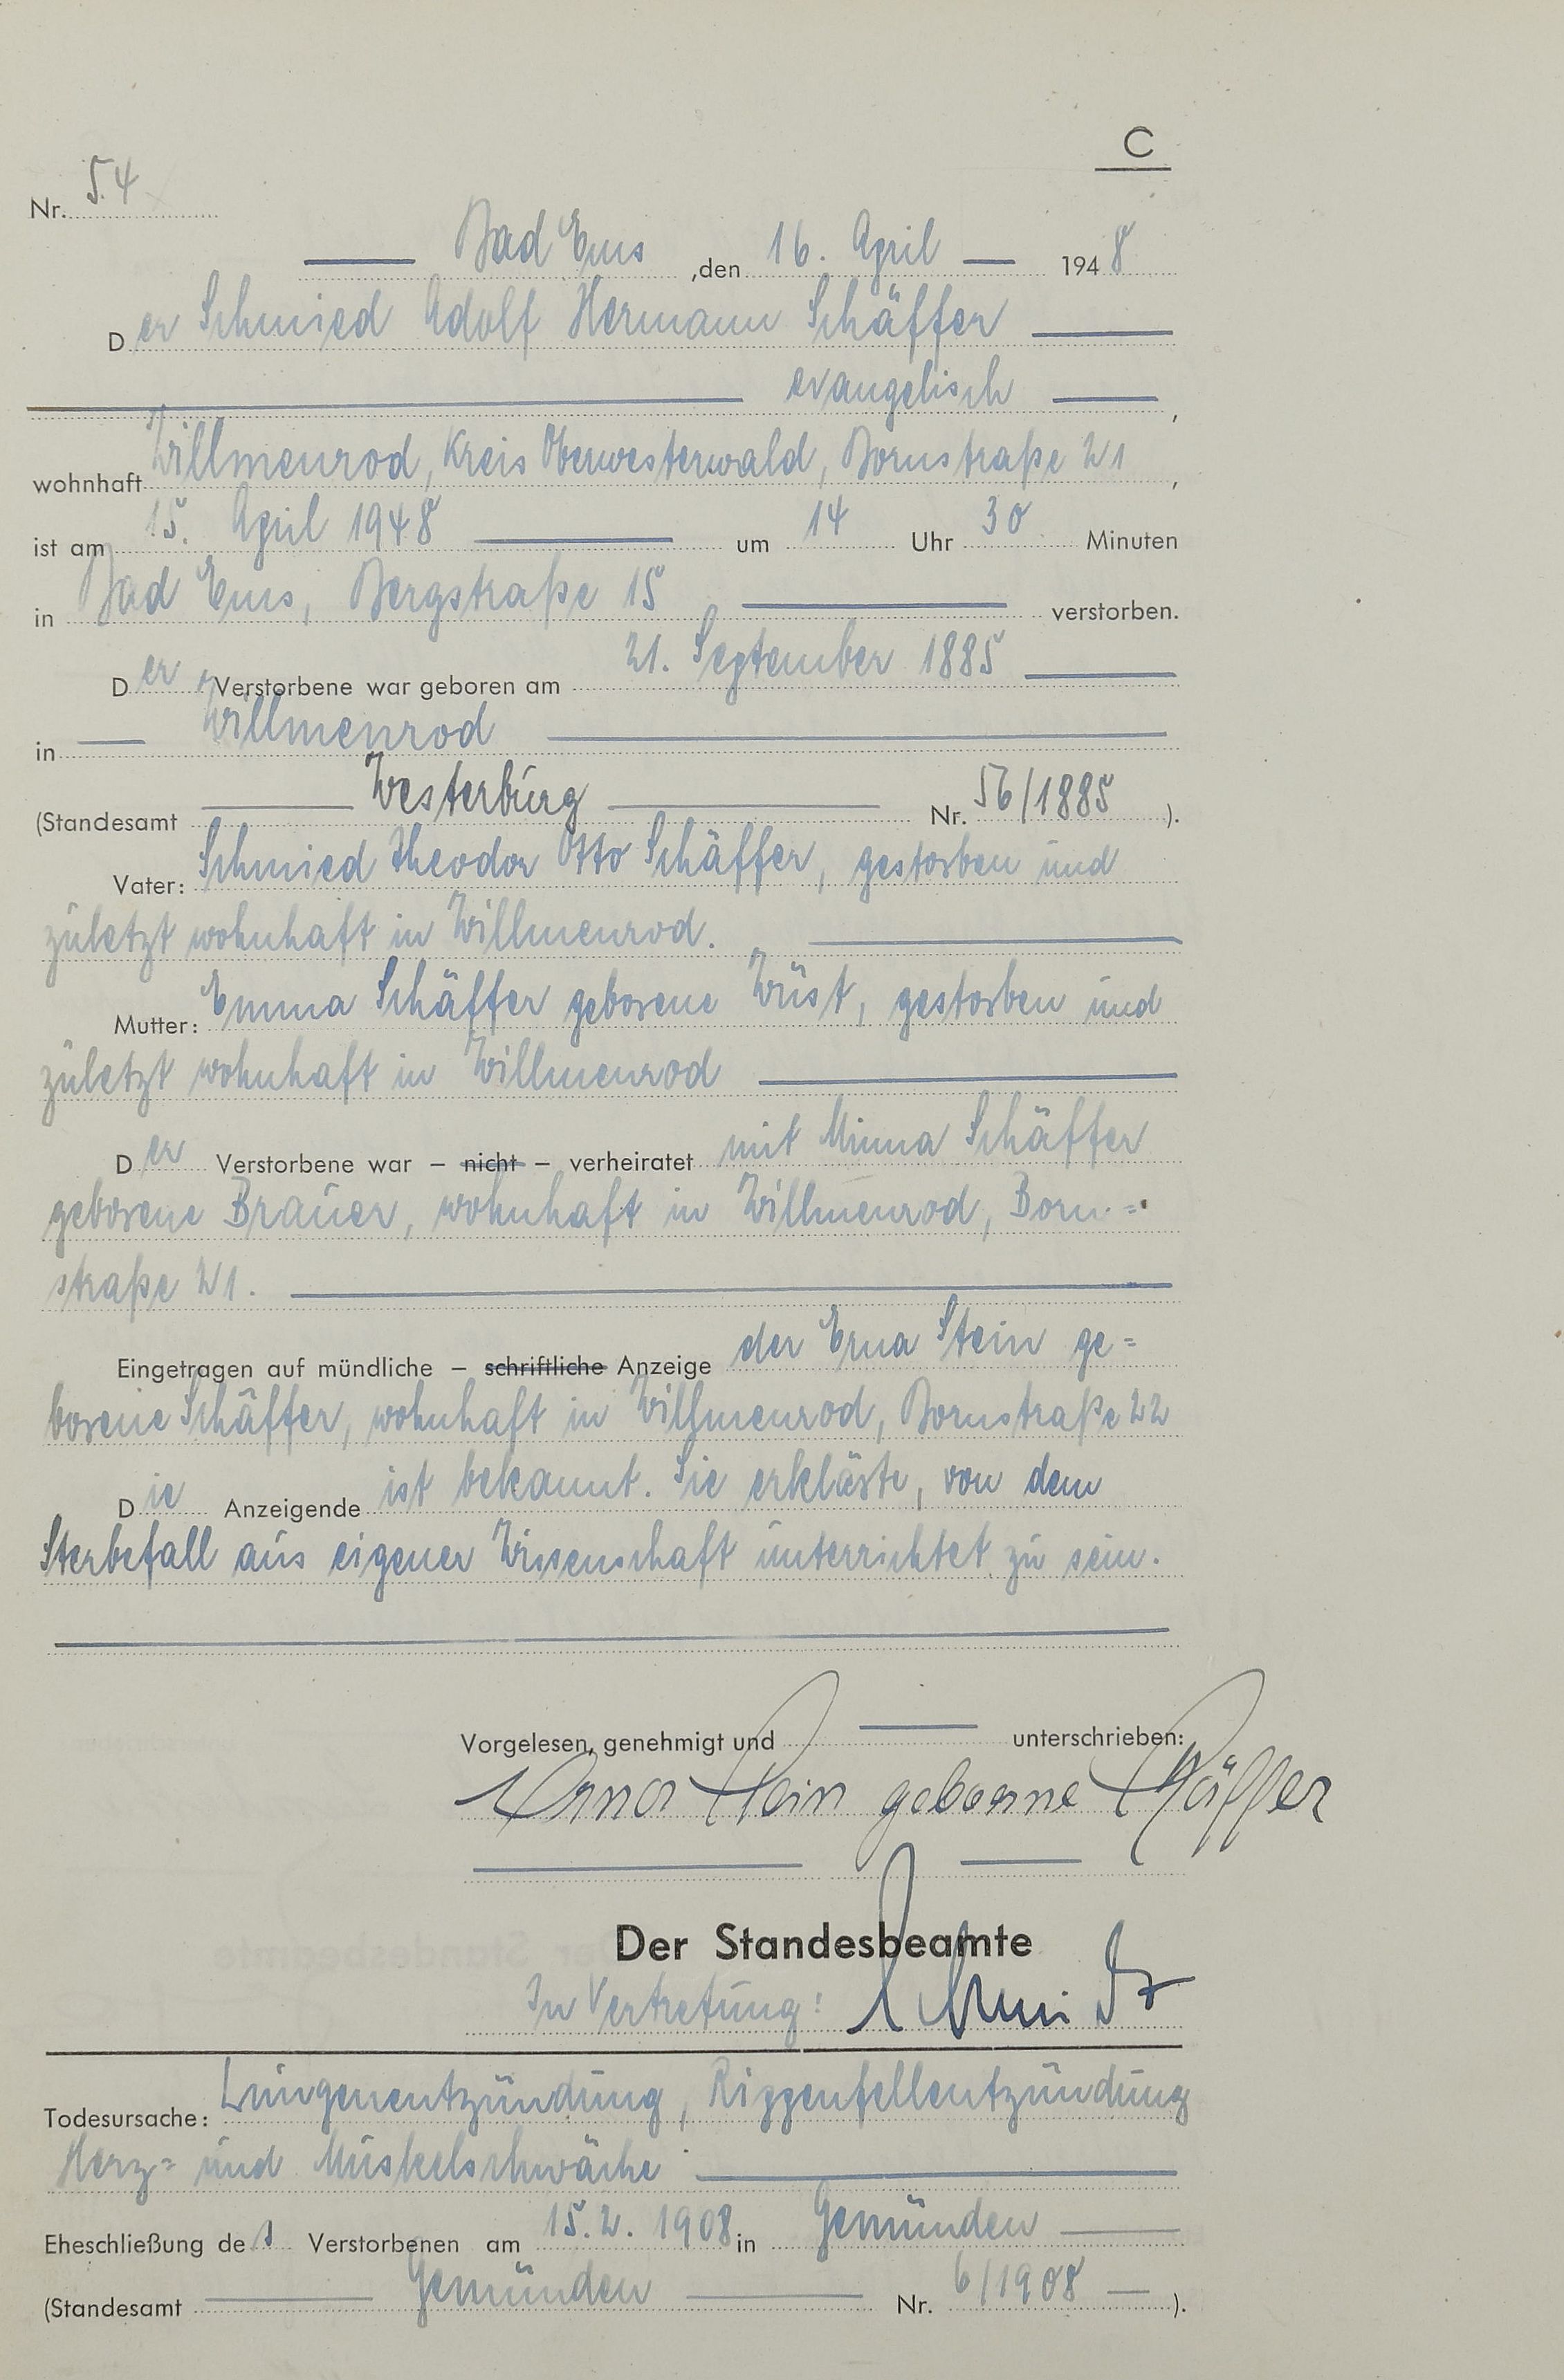 C
Nr. 54
Bad Ems, den 16. April 1948
Der Schmied Adolf Hermann Schäffer
evangelisch,
wohnhaft Willmenrod, Kreis Oberwesterwald, Bornstraße 21,
ist am 15. April 1948 um 14 Uhr 30 Minuten
in Bad Ems, Bergstraße 15 verstorben.
Der Verstorbene war geboren am 21. September 1885
in Willmenrod
(Standesamt Westerburg Nr. 56/1885).
Vater: Schmied Theodor Otto Schäffer, gestorben und
zuletzt wohnhaft in Willmenrod.
Mutter: Emma Schäffer geborene Wüst, gestorben und
zuletzt wohnhaft in Willmenrod
Der Verstorbene war – nicht – verheiratet mit Minna Schäffer
geborene Brauer, wohnhaft in Willmenrod, Born=
straße 21.
Eingetragen auf mündliche – schriftliche Anzeige der Erna Stein ge=
borene Schäffer, wohnhaft in Willmenrod, Bornstraße 22
Die Anzeigende ist bekannt. Sie erklärte, von dem
Sterbefall aus eigener Wissenschaft unterrichtet zu sein.
Vorgelesen, genehmigt und unterschrieben:
Erna Stein geborene Schäffer
Der Standesbeamte
In Vertretung: Schmidt
Todesursache: Lungenentzündung, Rippenfellentzündung
Herz= und Muskelschwäche
Eheschließung des Verstorbenen am 15.2.1908 in Gemünden
(Standesamt Gemünden Nr. 6/1908).